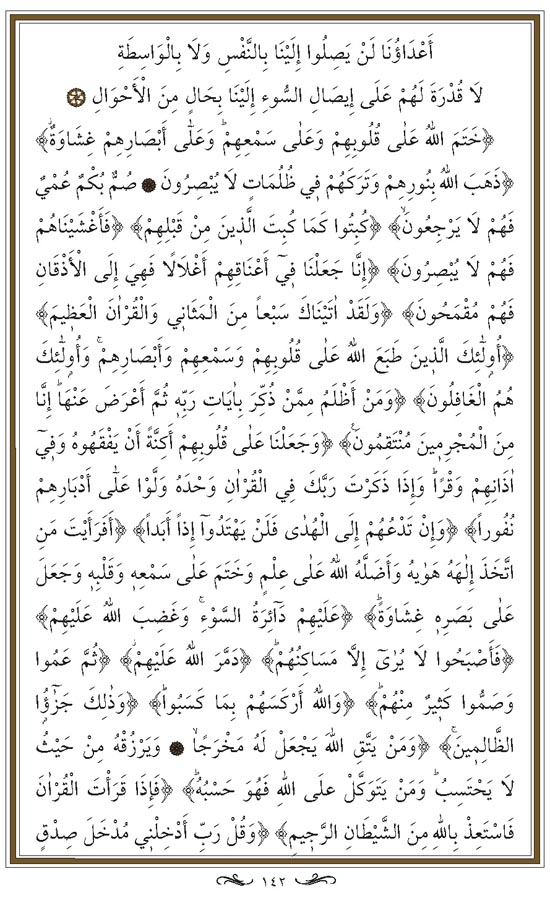 أَعْدَاؤُنَا لَنْ يَصِلُوا إِلَيْنَا بِالنَّفْسِ وَلَا بِالْوَاسِطَةِ
لَا قُدْرَةَ لَهُمْ عَلَى إِيصَالِ السُّوءِ إِلَيْنَا بِحَالٍ مِنَ الْأَحْوَالِ ۞
﴿خَتَمَ اللهُ عَلٰى قُلُوبِهِمْ وَعَلٰى سَمْعِهِمْۜ وَعَلٰٓى أَبْصَارِهِمْ غِشَاوَةٌۘ﴾
﴿ذَهَبَ اللهُ بِنُورِهِمْ وَتَرَكَهُمْ فِي ظُلُمَاتٍ لَا يُبْصِرُونَ ● صُمٌّ بُكْمٌ عُمْيٌ
فَهُمْ لَا يَرْجِعُونَۙ﴾ ﴿كُبِتُوا كَمَا كُبِتَ الَّذِينَ مِنْ قَبْلِهِمْ﴾ ﴿فَأَغْشَيْنَاهُمْ
فَهُمْ لَا يُبْصِرُونَ﴾ ﴿إِنَّا جَعَلْنَا فِيٓ أَعْنَاقِهِمْ أَغْلَالًا فَهِيَ إِلَى الْأَذْقَانِ
فَهُمْ مُقْمَحُونَ﴾ ﴿وَلَقَدْ اٰتَيْنَاكَ سَبْعاً مِنَ الْمَثَانِي وَالْقُرْاٰنَ الْعَظِيمَ﴾
﴿أُولٰٓئِكَ الَّذِينَ طَبَعَ اللهُ عَلٰى قُلُوبِهِمْ وَسَمْعِهِمْ وَأَبْصَارِهِمْۚ وَأُولٰٓئِكَ
هُمُ الْغَافِلُونَ﴾ ﴿وَمَنْ أَظْلَمُ مِمَّنْ ذُكِّرَ بِاٰيَاتِ رَبِّهِ ثُمَّ أَعْرَضَ عَنْهَاۜ إِنَّا
مِنَ الْمُجْرِمِينَ مُنْتَقِمُونَ۟﴾ ﴿وَجَعَلْنَا عَلٰى قُلُوبِهِمْ أَكِنَّةً أَنْ يَفْقَهُوهُ وَفِيٓ
اٰذَانِهِمْ وَقْرًاۜ وَإِذَا ذَكَرْتَ رَبَّكَ فِي الْقُرْاٰنِ وَحْدَهُ وَلَّوْا عَلٰٓى أَدْبَارِهِمْ
نُفُوراً﴾ ﴿وَإِنْ تَدْعُهُمْ إِلَى الْهُدٰى فَلَنْ يَهْتَدُوٓا إِذاً أَبَداً﴾ ﴿أَفَرَأَيْتَ مَنِ
اتَّخَذَ إِلٰهَهُ هَوٰيهُ وَأَضَلَّهُ اللهُ عَلٰى عِلْمٍ وَخَتَمَ عَلٰى سَمْعِهِ وَقَلْبِهِ وَجَعَلَ
عَلٰى بَصَرِهِ غِشَاوَةًۜ﴾ ﴿عَلَيْهِمْ دَآئِرَةُ السَّوْءِۚ وَغَضِبَ اللهُ عَلَيْهِمْ﴾
﴿فَأَصْبَحُوا لَا يُرٰىٓ إِلَّا مَسَاكِنُهُمْۜ﴾ ﴿دَمَّرَ اللهُ عَلَيْهِمْۘ﴾ ﴿ثُمَّ عَمُوا
وَصَمُّوا كَثِيرٌ مِنْهُمْۜ﴾ ﴿وَاللهُ أَرْكَسَهُمْ بِمَا كَسَبُواۜ﴾ ﴿وَذٰلِكَ جَزَٓؤُا
الظَّالِمِينَۚ﴾ ﴿وَمَنْ يَتَّقِ اللهَ يَجْعَلْ لَهُ مَخْرَجًاۙ ● وَيَرْزُقْهُ مِنْ حَيْثُ
لَا يَحْتَسِبُۜ وَمَنْ يَتَوَكَّلْ عَلَى اللهِ فَهُوَ حَسْبُهُۜ﴾ ﴿فَإِذَا قَرَأْتَ الْقُرْاٰنَ
فَاسْتَعِذْ بِاللهِ مِنَ الشَّيْطَانِ الرَّجِيمِ﴾ ﴿وَقُلْ رَبِّ أَدْخِلْنِي مُدْخَلَ صِدْقٍ
١٤٢